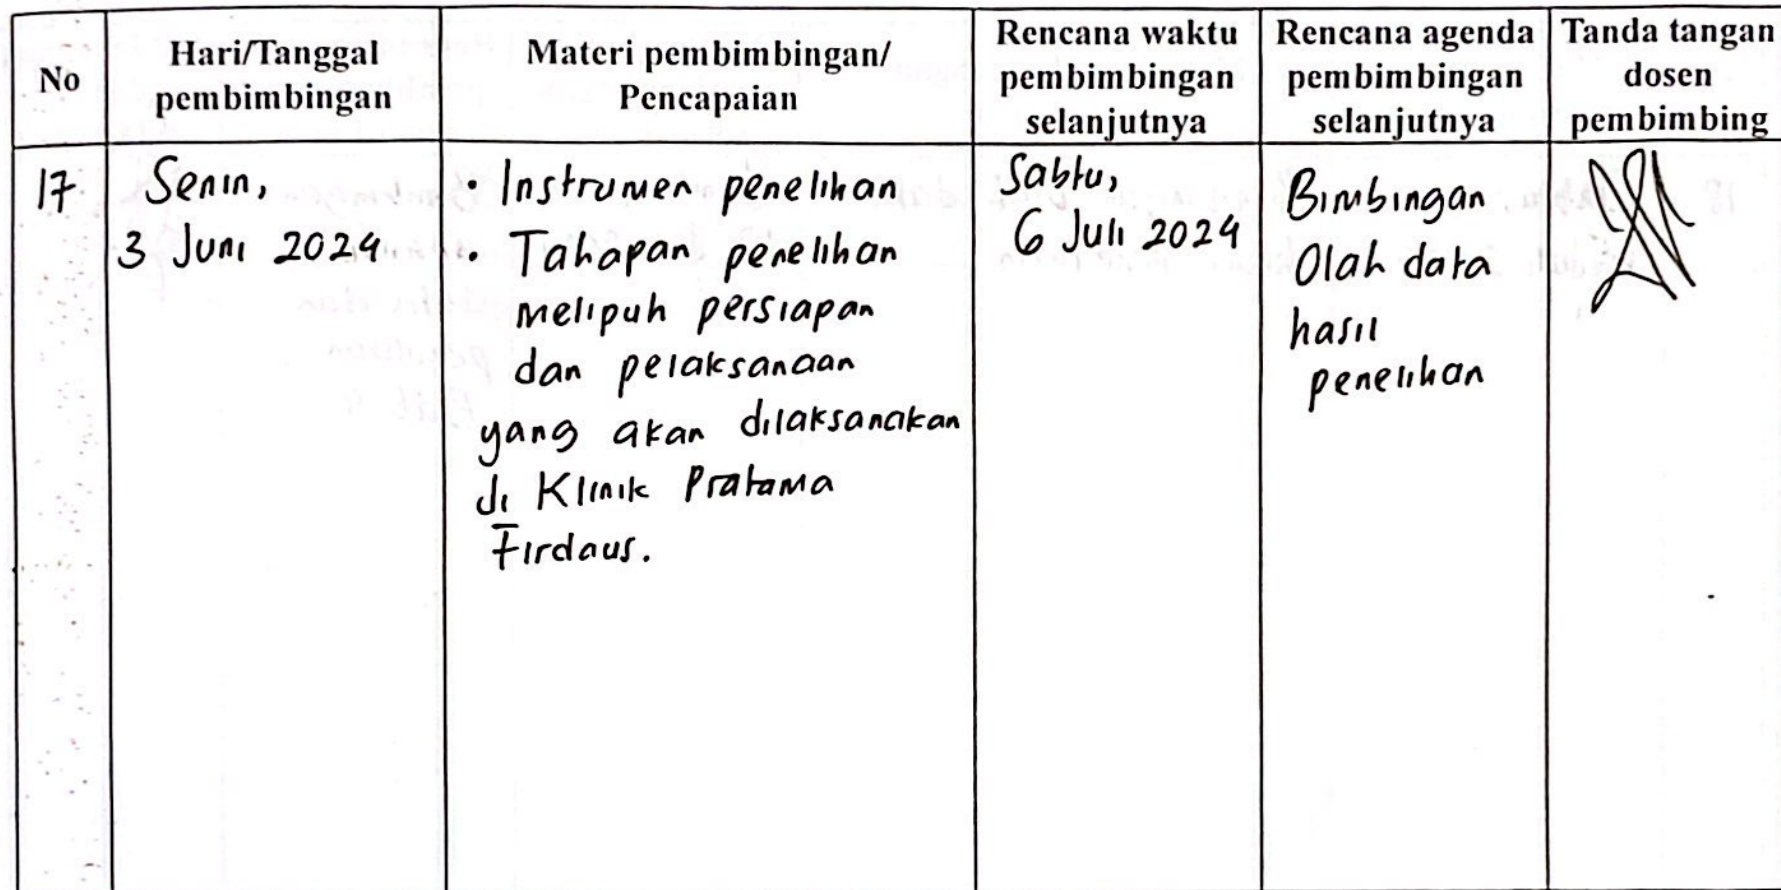 No
Hari/Tanggal
pembimbingan
Materi pembimbingan/
Pencapaian
Rencana waktu
pembimbingan
selanjutnya
Rencana agenda
pembimbingan
selanjutnya
Tanda tangan
dosen
pembimbing
17
Senin,
3 Juni 2024
• Instrumen penelitian
• Tahapan penelitian
meliputi persiapan
dan pelaksanaan
yang akan dilaksanakan
di Klinik Pratama
Firdaus.
Sabtu,
6 Juli 2024
Bimbingan
Olah data
hasil
penelitian